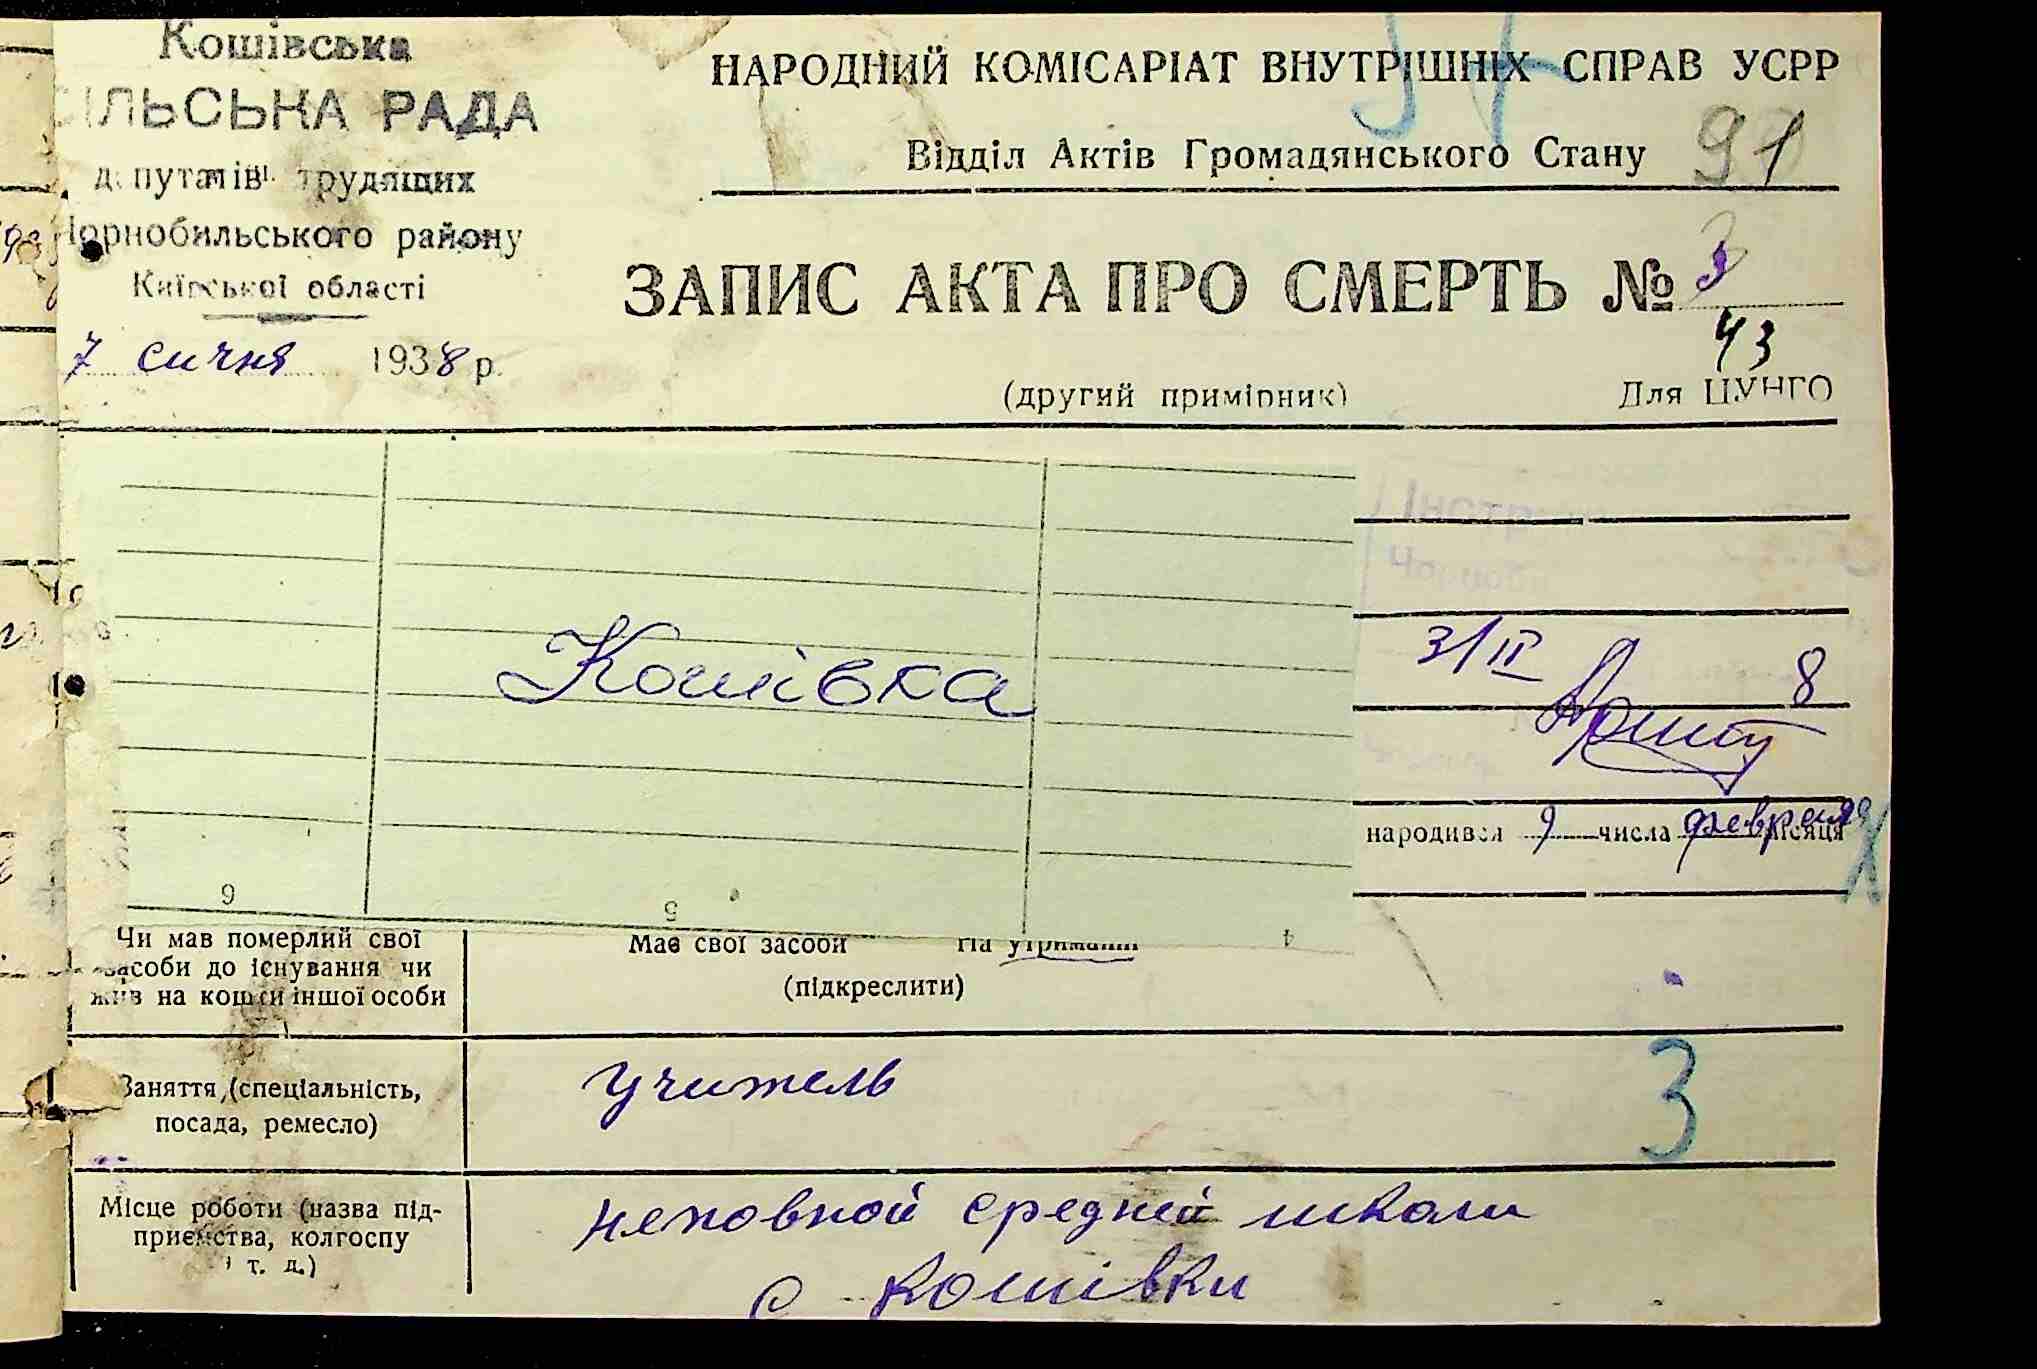 Кошівська
СІЛЬСЬКА РАДА
депутатів трудящих
Чорнобильського району
Київської області
7 січня 1938 р.
НАРОДНИЙ КОМІСАРІАТ ВНУТРІШНІХ СПРАВ УСРР
Відділ Актів Громадянського Стану 91
ЗАПИС АКТА ПРО СМЕРТЬ № 3
43
(другий примірник) Для ЦУНГО
Інстр
Чорноби
3/II
8
Кошівка
народився 9 числа февраля місяця
6 5 4
Чи мав померлий свої засоби до існування чи жив на кошти іншої особи
Має свої засоби На утриманні
(підкреслити)
Заняття (спеціальність, посада, ремесло)
учитель
3
Місце роботи (назва підприємства, колгоспу і т. д.)
неповной средней школи
с Кошівки